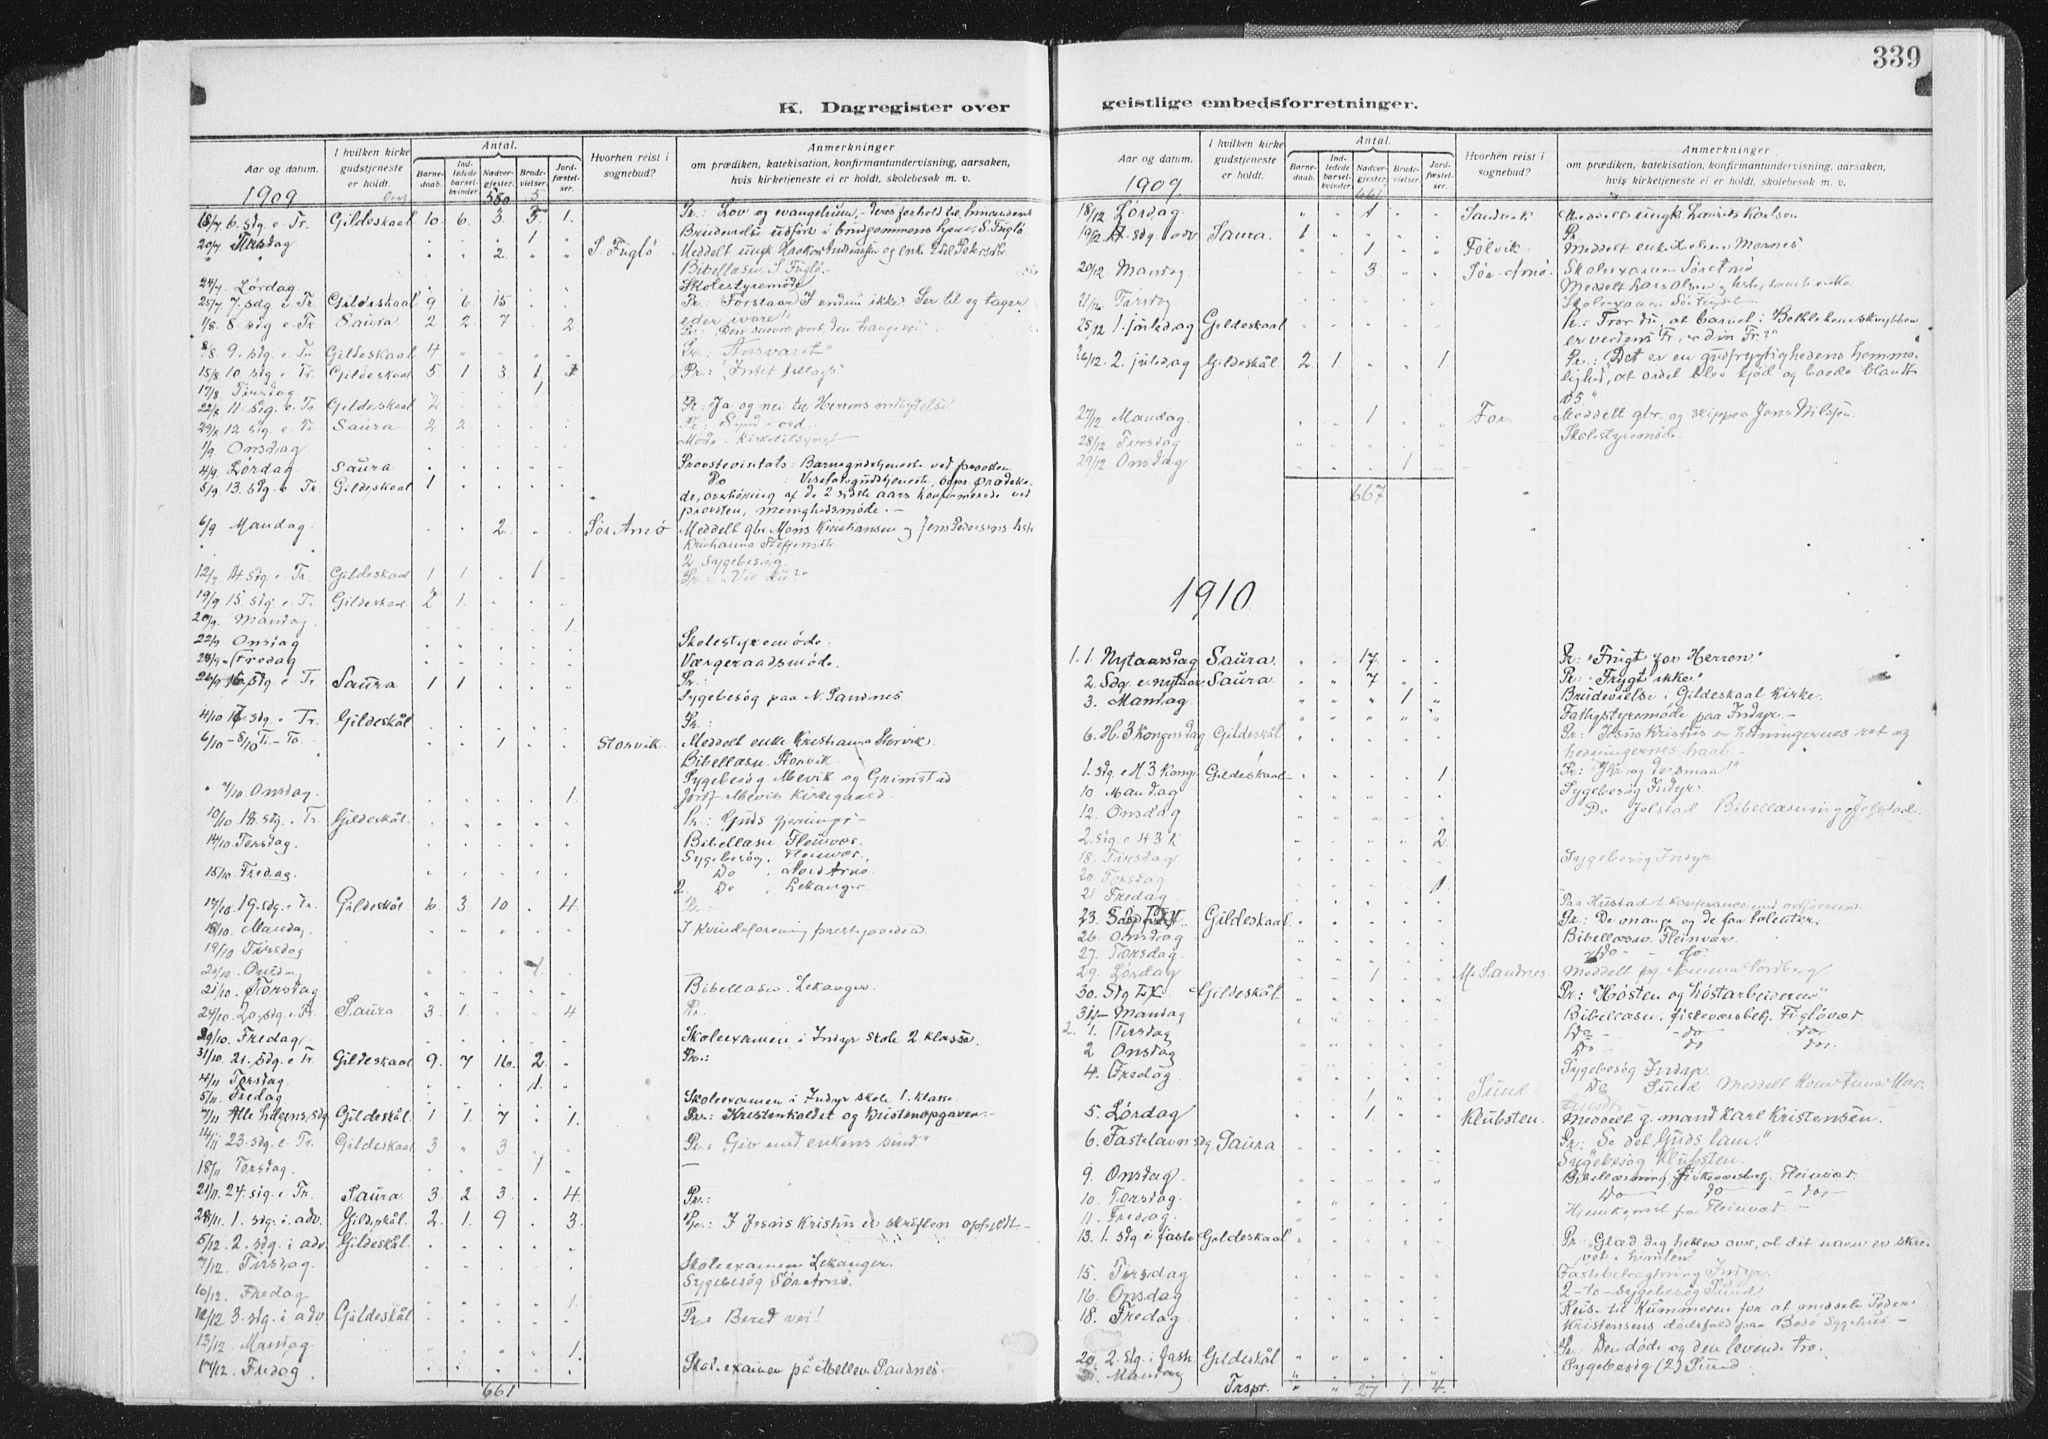 339
K. Dagregister over
Aar og datum.
I hvilken kirke gudstjeneste er holdt.
Antal.
Barnedaab.
Indledede barselkvinder.
Nadvergjester.
Brudevielser.
Jordfæstelser.
Hvorhen reist i sognebud?
Anmerkninger
om prædiken, katekisation, konfirmantundervisning, aarsaken,
hvis kirketjeneste ei er holdt, skolebesøk m. v.
1909 580 5
18/7 6. sdg e. Tr. Gildeskaal 10 6. 3 3 1. Pr.: Lov og evangelium, - deres forhold til
20/7 Tirsdag 1 Brudevielse udført i brudgommens hjem, S. Fuglø
2. S. Fuglø Meddelt ungk. og enke
Bibellæsn. S. Fuglø.
24/7 Lørdag Skolestyremøde
25/7 7. sdg e. Tr. Gildeskaal 9 6 15 Pr: Forstaar I endnu ikke? Ser til og tager
eder ivare!
1/8. 8. sdg e. Tr. Saura 2 2. 7 2 Pr: Den snevre port, den trange vei.
8/8. 9. sdg e. Tr. Gildeskaal 4 Pr.: "Ansvaret"
15/8 10 sdg e. Tr. Gildeskaal 5 1 3 1 1 Pr.: "Intet
17/8 Tirsdag 1
22/8 11. sdg. e. Tr. Gildeskaal 2 Pr: Ja og nei til Herrens indbydelse
29/8 12. sdg e. Tr. Saura 2 2 Pr: Synd i ord.
1/9 Onsdag Møde i Kirketilsynet
4/9 Lørdag Saura Provstevisitats: Barnegudstjeneste ved provsten
5/9 13. sdg. e. Tr. Gildeskaal 1 Do : Visitatsgudstjeneste, sogpr prædike-
de, overhøring af de 2 sidste aars konfirmerede ved
provsten, menighedsmøde. -
6/9 Mandag 2. Sør Arnø Meddelt gbr Mons Kristiansen og Jens Pedersens hstr
2 Sygebesøg.
12/9 14 sdg. e. Tr. Gildeskaal 1 1 1 Pr.: "Vil du?"
19/9 15. sdg e. Tr. Gildeskaal 2 1.
20/9. Mandag 1
22/9 Onsdag Skolestyremøde.
24/9 Fredag Værgeraadsmøde.
26/9 16. sdg. e. Tr Saura 1 1 Pr.:
Sygebesøg paa N. Sandnes
4/10 17 sdg. e. Tr. Gildeskål Pr.:
6/10 - 8/10 1 Storvik. Meddelt enke Kristianna Storvik.
Bibellæsn. Storvik.
Sygebesøg Mevik og Grimstad
7/10. Onsdag. 1. Jordf Mevik Kirkegaard.
10/10 18. sdg. e. Tr. Gildeskål. Pr.: Guds gjerninger
14/10 Torsdag. Bibellæsn Fleinvær.
Sygebesøg, Fleinvær.
15/10. Fredag Do , Nord Arnø
2. Do , Lekanger.
17/10. 19. sdg. e. Tr. Gildeskål 6 3. 10 4. Pr.:
18/10. Mandag I Kvindeforening
19/10 Tirsdag
20/10. Onsdag 1
21/10. Torsdag Bibellæsn. Lekanger.
24/10 20. sdg. e. Tr. Saura 3. 1. 4 Pr.
29/10. Fredag Skoleexamen i Indyr skole 2. klasse.
31/10 21. sdg. e Tr Gildeskaal 9. 7 16. 2. Pr.:
4/11 Torsdag. 1.
5/11. Fredag Skoleexamen i Indyr skole 1. klasse.
7/11 Alle helgens.sdg Gildeskål. 1 1 7 1. Pr.: Kristenkaldet og Kristenopgaven
14/11 23. sdg. e. Tr. Gildeskaal 3 3 Pr.: Giv med enkens sind"
18/11 Torsdag. 1
21/11. 24. sdg. e. Tr. Saura. 3. 2 3. 4 Pr.:
28/11. 1. sdg. i. adv. Gildeskål. 2. 1. 9 3. Pr.: I Jesus Kristus er skriften opfyldt -
5/12. 2. sdg. i adv Gildeskål.
7/12. Tirsdag. Skoleexamen Lekanger.
Sygebesøg Sør Arnø.
10/12. Fredag 1.
12/12 3. sdg. i adv Gildeskål Pr.: Bered vei!
13/12. Mandag 1.
17/12. Fredag Skoleexamen på Mellem Sandnes.
661
geistlige embedsforretninger.
Aar og datum.
I hvilken kirke gudstjeneste er holdt.
Antal.
Barnedaab.
Indledede barselkvinder.
Nadvergjester.
Brudevielser.
Jordfæstelser.
Hvorhen reist i sognebud?
Anmerkninger
om prædiken, katekisation, konfirmantundervisning, aarsaken,
hvis kirketjeneste ei er holdt, skolebesøk m. v.
1909 661
18/12 Lørdag 1 Sandvik Meddelt ungk Laurits Karlsen
19/12. 4. sdg. i adv Saura. 1 Pr
1 Følvik. Meddelt enke
20/12. Mandag 3. Sør-Arnø. Skoleexamen Sør Arnø
Meddelt Lars Olsen og hstr, samt enke
21/12 Tirsdag Skoleexamen
25/12 1. juledag Gildeskaal Pr.: Tror du, at barnet i Betlehemskrybben
er verdens Fr., er din Fr?"
26/12. 2. juledag Gildeskål 2. 1 1. Pr.: Det er en gudfrygtighedens hemme-
lighed, at ordet blev kjød og boede blandt
os."
27/12 Mandag. 1 For. Meddelt gbr. og skipper Jens Nilsen.
28/12. Tirsdag Skolestyremøde.
29/12. Onsdag 1
667
1910
1. 1. Nytaarsdag Saura. 17. Pr: "Frugt for Herren"
2. Sdg. e. nytaar Saura. 7 Pr: "Frygt ikke"
3. Mandag. 1 Brudevielse i Gildeskaal Kirke.
Fattigstyremøde paa Indyr. -
6. H. 3 kongersdag Gildeskål Pr.: Jesus Kristus er hedningernes ret og
hedningernes haab -
1. sdg. e H 3 kong. Gildeskaal 1 Pr:
10 Mandag Sygebesøg Indyr
12. Onsdag Do Jelstad Bibellæsning Jelstad.
2. sdg. e H 3 k 2.
18. Tirsdag Sygebesøg Indyr.
20. Torsdag 1.
21 Fredag Paa Hustad t. konferance med ordføreren.
23. Gildeskaal Pr.: De mange og de faa talenter.
26. Onsdag Bibellæsn. Fleinvær.
27. Torsdag Do - do.
29. Lørdag 1 M. Sandnes. Meddelt pg. Emma Nordberg
30. Sdg Gildeskål Pr.: "Høsten og høstarbeiderne"
31. Mandag Bibellæsn. fiskeværsbetj. Fugløvær.
2. 1. Tirsdag Do - do - do
2 Onsdag Do do do.
4. Fredag Sygebesøg Indyr.
1 Sund. Do Sund. Meddelt
5. Lørdag 1 Klubsten. Meddelt g. mand Karl Kristensen.
6. Fastelavnsdg. Saura Pr: Se det Guds lam."
Sygebesøg Klubsten.
9. Onsdag Bibellæsning, fiskeværsbetj. Fleinvær.
10. Torsdag. Do do - do -
11. Fredag. Hjemkomst fra Fleinvær. -
13. 1. sdg. i faste Gildeskaal Pr.: Glæd dig heller over, at dit navn er skre-
vet i himlen"
15. Tirsdag Fastebetragtning Indyr.
16. Onsdag 2 - to - sygebesøg Sund
18. Fredag Reise til Kummeren for at meddele Peder
Kristensens dødsfald paa Bodø Sygehus -
20. 2. sdg. i fasten Gildeskål Pr: Den døde og den levende tro.
21. Mandag Sygebesøg (2) Sund.
Trspt. 27 1. 4.